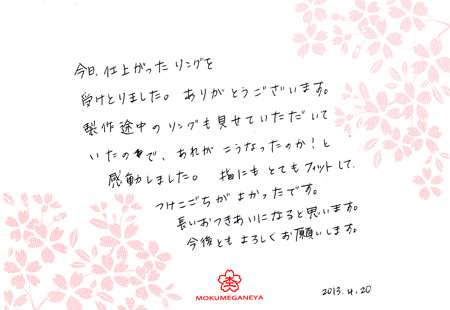 今日、仕上がったリングを
受けとりました。ありがとうございます。
製作途中のリングも見せていただいて
いたので、あれがこうなったのか！と
感動しました。指にもとてもフィットして、
つけごこちがよかったです。
長いおつきあいになると思います。
今後ともよろしくお願いします。
MOKUMEGANEYA
2013.4.20